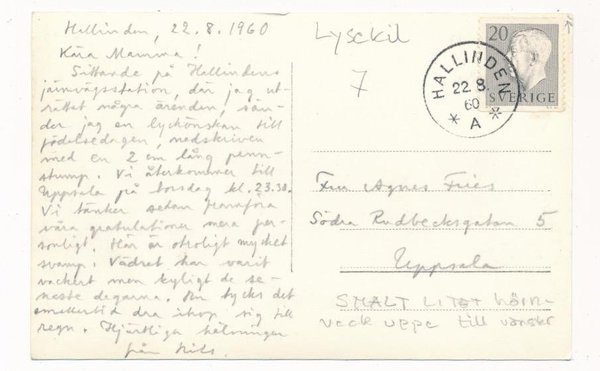 Hallinden, 22.8.1960
Kära Mamma!
Sittande på Hallindens
järnvägsstation, där jag ut-
rättat några ärenden, sän-
der jag en lyckönskan till
födelsedagen, nedskriven
med en 2 cm lång penn-
stump. Vi återkommer till
Uppsala på torsdag kl. 23.30.
Vi tänker sedan framföra
våra gratulationer mera per-
sonligt. Här är otroligt mycket
svamp. Vädret har varit
vackert men kyligt de se-
naste dagarna. Nu tycks det
emellertid dra ihop sig till
regn. Hjärtliga hälsningar
från Nils.
Lysekil
7
20
SVERIGE
HALLINDEN
22 8.
60
* A *
Fru Agnes Fries
Södra Rudbecksgatan 5
Uppsala
SMALT LITET hörn-
veck uppe till vänster